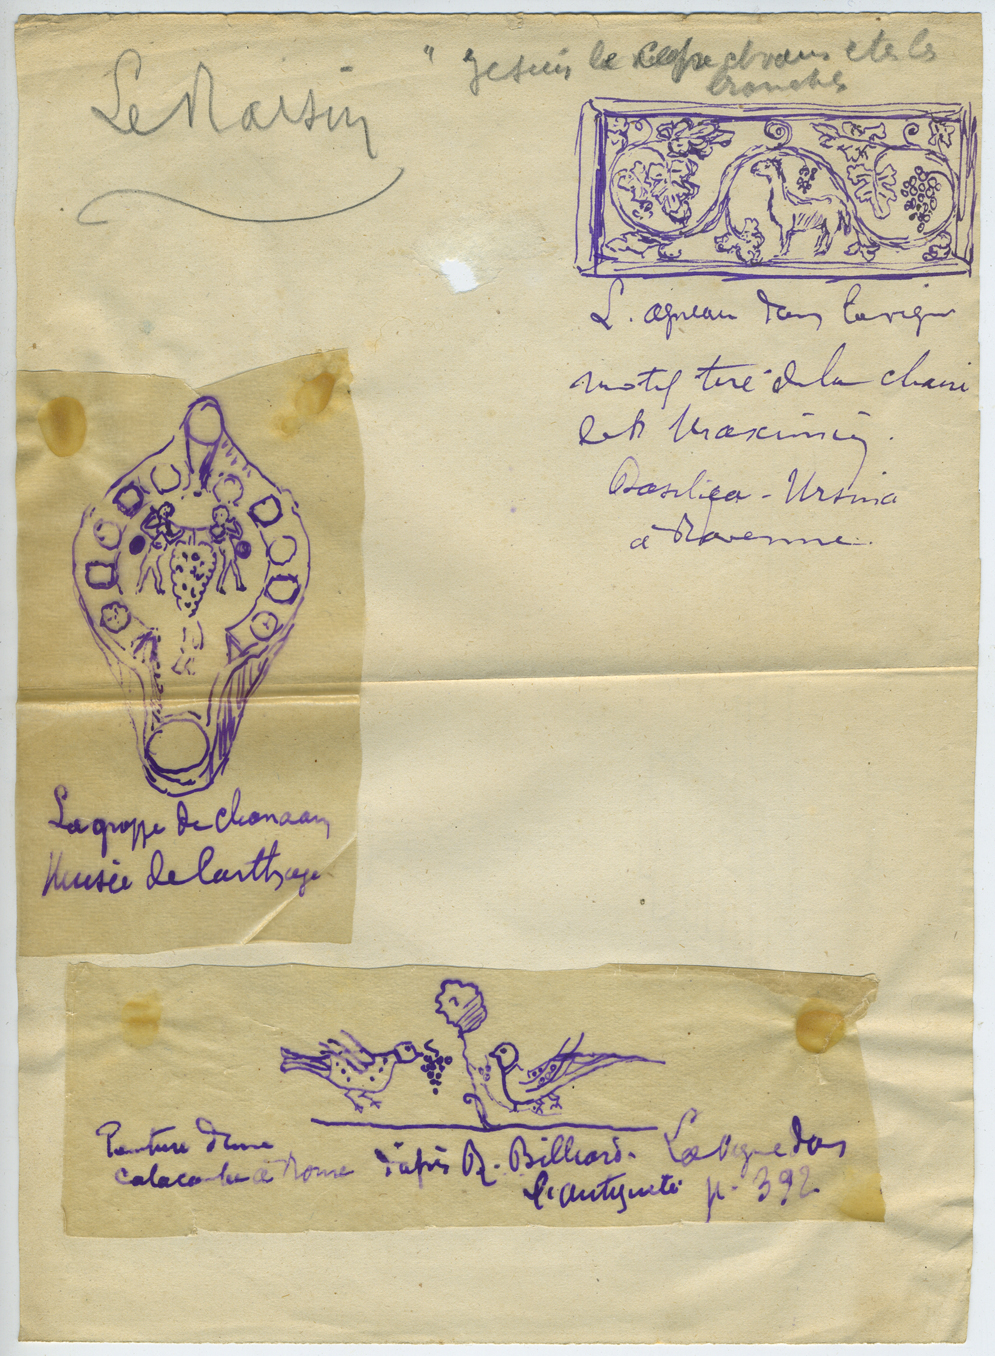 Le Raisin
" Je suis le cep et vous etes les
branches
L'agneau dans la vigne
motif tiré de la chaire
de St Maximin.
Basilica - Ursina
à Ravenne.
La grappe de Chanaan
Musée de Carthage
Peinture d'une
catacombe à Rome
d'après R. Billiard. La Vigne dans
l'antiquité p. 392